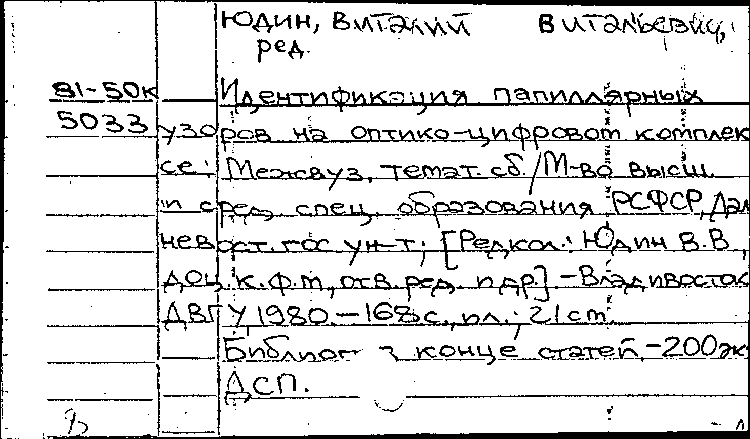 Юдин, Виталий Витальевич,
ред.
81-50к Идентификация папиллярных
5033 узоров на оптико-цифровом комплек
се: Межвуз. темат. сб. / М-во высш.
и сред. спец. образования РСФСР, Дал
невост. гос. ун-т; [Редкол.: Юдин В.В.,
доц. к.ф.м, отв. ред. и др.] -Владивосток
ДВГУ, 1980.-168с., ил.; 21 cm
Библиог в конце статей.-200эк
ДСП.